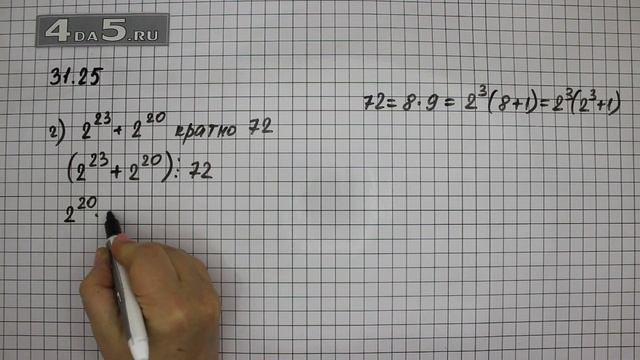 4DA5.RU
31.25
г) 2²³ + 2²⁰ кратно 72
(2²³ + 2²⁰) ⋮ 72
2²⁰ ·
72 = 8 · 9 = 2³(8+1) = 2³(2³+1)